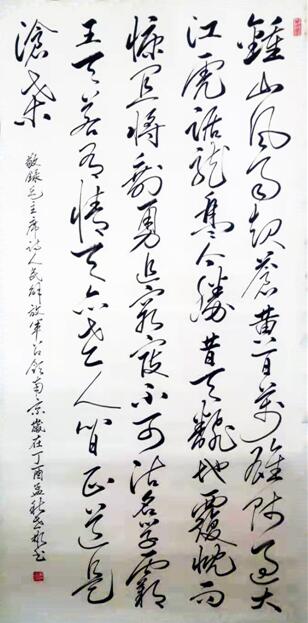 鍾山風雨起蒼黃百萬雄師過大
江虎踞龍盤今勝昔天翻地覆慨而
慷宜將剩勇追窮寇不可沽名學霸
王天若有情天亦老人間正道是
滄桑
敬錄毛主席詩人民解放軍占領南京歲在丁酉孟秋書